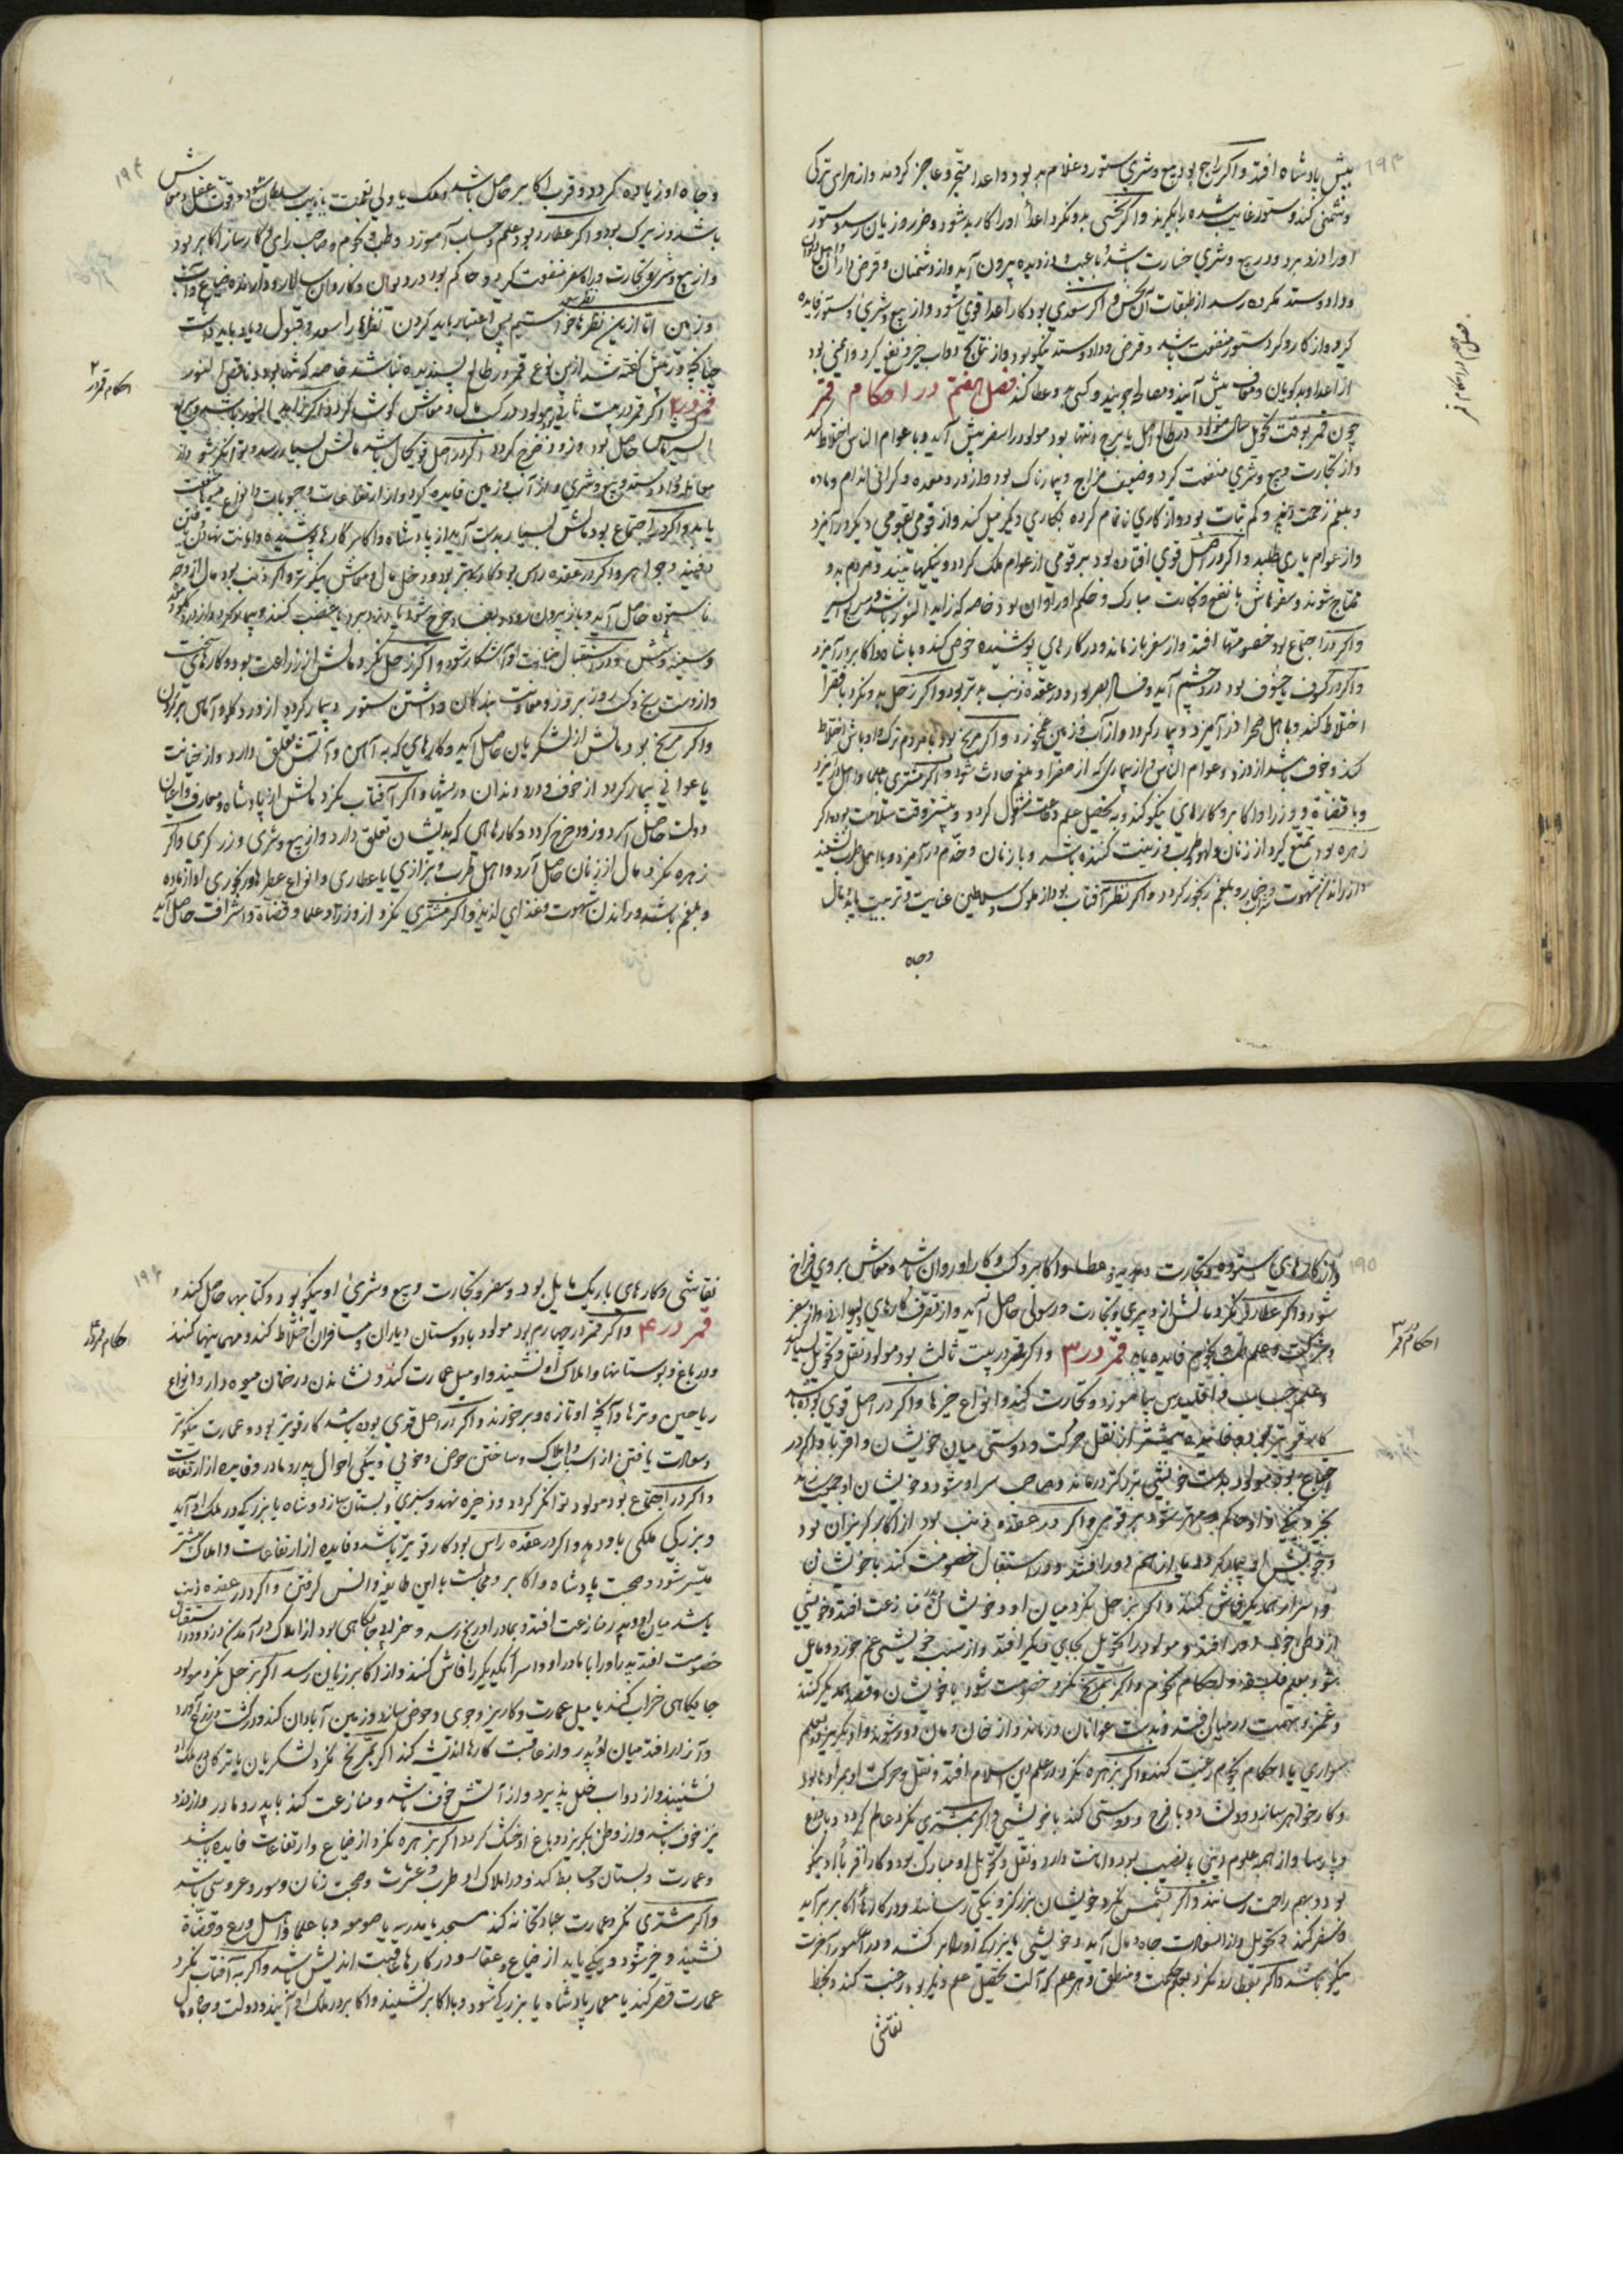 پیش پادشاه افتد و اگر راجع بود بیع و شری ستور و غلام بد بود و اعدا متحیر و عاجز گردند و از هراس ترکی
دشمنی کند و ستور غایب شده را بگیرند و اگر نحسی بدو نگرد اعدا اورا کار بد شود و ضرر و زیان رسد و ستور
اورا دزد برد و در بیع و شری خسارت باشد
و داد و ستد مکروه رسد از طبقات آن نحس و اگر سعدی بود کار اعدا قوی شود و از بیع و شری و ستور فایده
گیرد و از کار و کرد ستور منفعت باشد و قرض و داد و ستد نیکو بود و از نتایج دواب خیر و نفع گیرد و ایمنی بود
از اعدا و بدگویان پیش آیند و مصالحه جویند فصل هفتم در احکام قمر
چون قمر بوقت تحویل سال مولاد در طالع اصل یا برج انتها بود مولود را سفر پیش آید و با عوام الناس اختلاط کند
و از تجارت و بیع و شری منفعت گیرد و ضعیف مزاج و بیمارناک بود و از درد معده و گرانی اندام و ماده
و بلغم زحمت بیند و کم ثبات بود و از کاری ناتمام کرده بکاری دیگر میل کند و از قومی بقومی دیگر در آمیزد
و از عوام یاری طلبد و اگر در اصل قوی افتاده بود بر قومی از عوام ملک گردد و نیکیها بیند و مردم بدو
محتاج شوند و سفرهاش با نفع و نکایت مبارک و حکم او روان بود خاصه که زاید النور باشد و سریع السیر
و اگر در اجتماع بود خصومتها افتد و از سفر باز ماند و در کارهای پوشیده خوض کند و با شاه و اکابر در آمیزد
و اگر در کسوف یا خسوف بود درد چشم آید و فساد بصر بود و در عقده ذنب بدتر بود و اگر زحل بدو نگرد با فقرا
اختلاط کند و با اهل صحرا در آمیزد و بیمار گردد و از آب و زمین غم خورد و اگر مریخ بود با مردم ترک و اوباش اختلاط
کند و خوف باشد از دزد و عوام الناس و از بیماری که از صفرا و بلغم حادث شود و اگر مشتری بعلما و اهل در آمیزد
و با قضاة و وزرا و اکابر و کارهای نیکو کند و به تحصیل علم و طاعت مشغول گردد و بیشتر وقت سلامت بود و اگر
زهره بود تمتع گیرد از زنان و لهو و طرب و زینت کننده باشد و با زنان و خدم در آمیزد و با اهل طرب نشیند
و از راندن شهوت و بلغم رنجور گردد و اگر نظر آفتاب بود از ملوک و سلاطین عنایت و تربیت یابد و مال
وجاه
۱۹۳
وجاه او زیاده گردد و قرب اکابر حاصل باشد
باشد و زیرک بود و اگر عطارد بود علم و حساب آموزد و طب و نجوم و صاحب رای و کارساز اکابر بود
و از بیع و شری و تجارت و راه سفر منفعت گیرد و حاکم بود در دیوان و کاروان سالار و دارنده ضیاع و آب
و زمین اما از این نظرها نظر سعد خواستیم پس اعتبار باید کردن نظرها را سعد و قبول و یاد باید داشت
چنانچه در پیش گفته شد از این نوع قمر در طالع پسندیده نباشد خاصه که تنها بود و ناقص النور
قمر در ۲ اگر قمر در بیت ثانی بود مولود در کسب مال و معاش کوشد
السیر مالش حاصل بود و زود خرج گردد اگر در اصل قویحال باشد مالش بسیار رسد و توانگر شود و از
معامله و داد و ستد و بیع و شری و از آب و زمین فایده گیرد و از ارتفاعات و حبوبات و انواع میوها منفعت
یابد و اگر در اجتماع بود مالش بسیار بدست آید از پادشاه و اکابر و کارها پوشیده و امانت نهادن
دفینه و جواهر و اگر در عقده راس بود کار بهتر بود و دخل مال و معاش نیکوتر و اگر ذنب بود مال از وجه
ناستوده حاصل آید و باز بیرون رود
و سینه و شش و در استقبال خیانت او آشکار شود و اگر زحل نگرد مالش از زراعت بود و کارهای سخت
و اگر مریخ بود مالش از لشکریان حاصل آید و کارهای که به آهن و آتش تعلق دارد و از خیانت
یا عوانی بیمار گردد از خوف و درد دندان و ریشها و اگر آفتاب نگرد مالش از پادشاه و معارف و اعیان
دولت حاصل آید و زود خرج گردد و کارهایی که بدیشان تعلق دارد و از بیع و شری و زرگری و اگر
زهره نگرد مال از زنان حاصل آرد و اهل طرب و بزازی یا عطاری و انواع عطرها و رنجوری او از ماده
و بلغم باشد و راندن شهوت و غذای لذیذ و اگر مشتری نگرد از وزرا و علما و قضاة و اشراف حاصل آید
۱۹۴
احکام قمر در ۲
و از کارهای ستوده و تجارت
شود و اگر عطارد نگرد مالش از دبیری و تجارت و رسولی حاصل آید و از تصرف کارهای دیوانی و از سفر
و شرکت و علم طب و نجوم فایده یابد قمر در ۳ و اگر قمر در بیت ثالث بود مولود نقل و تحویل بسیار کند
و علم حساب و اقلیدس بیاموزد و تجارت کند و انواع چیزها و اگر در اصل قوی بوده باشد
کار قوی تر بود و فایده بیشتر از نقل و حرکت و دوستی میان خویشان و اقربا و اگر در
اجتماع بود مولود بدست خویشی بزرگتر درماند و صاحب سر او شود و خویشان او جمعیت سازند
و بخویش او بیمار گردد یا از هم دور افتند و در استقبال خصومت کند با خویشان
و اسرار همدیگر فاش کنند و اگر زحل نگرد میان او و خویشان منازعت افتد و خویشی
از وطن خود دور افتد و مولود را تحویل بجای دیگر افتد و از سبب خویشی غم خورد و مایل
شود بعلم فلسفه و احکام نجوم و اگر مریخ نگرد خصومت شود با خویشان و قصد همدیگر کنند
و غمز و تهمت در میان افتد و بدست عوانان درماند و از خان و مان دور شوند
سواری یا احکام نجوم رغبت کند و اگر زهره نگرد در علم دین اسلام افتد و نقل و حرکت او بمراد بود
و کار خواهر سازد و دلشاد و با فرح و دوستی کند با خویشی و اگر مشتری نگرد عالم گردد و با ورع
و پارسا و از همه علوم دینی با نصیب بود و امانت دارد و نقل و تحویل او مبارک بود و کار اقربا او نیکو
بود و بهم راحت رسانند و اگر شمس نگرد خویشان بزرگ گردند و نیکی رسانند و در کارها اکابر برآید
و سفر کند و تحویل و از اسفارات جاه و مال آید و خویشی یا بزرگی اورا بر کشد و در امور آخرت
نیکو باشد و اگر عطارد نگرد بعلم حکمت و منطق و هر علم که آلت تحصیل علم دیگر بود رغبت کند و بخط
نقاشی
۱۹۵
احکام قمر در ۳
نقاشی و کارهای باریک مایل بود و سفر و تجارت و بیع و شری او نیکو بود و کتابها حاصل کند
قمر در ۴ و اگر قمر در چهارم بود مولود با دوستان و یاران و مسافران اختلاط کند و مهمانیها کنند
و در باغ و بوستانها و املاک او نشیند و او میل عمارت کند و نشاندن درختان میوه دار و انواع
ریاحین و ترها و آنچه او تازه و برخورند و اگر در اصل قوی بوده باشد کار قویتر بود و عمارت نیکوتر
و سعادت یافتن از اسباب و املاک و ساختن حوض و خوبی و نیکی احوال پدر و مادر و فایده از ارتفاعات
و اگر در اجتماع بود مولود توانگر گردد و ذخیره نهد و سبزی و بستان سازد و شاه یا بزرگی در ملک او آید
و بزرگی ملکی باو دهد و اگر در عقده راس بود کار قویتر باشد و فایده از ارتفاعات و املاک بیشتر
میسر شود و صحبت پادشاه و اکابر و مجالست با این طایفه و انس گرفتن و اگر در عقده ذنب
باشد میان او و پدر منازعت افتد و بمادر او رنج رسد و خرابی جایگاهی بود از املاک
خصومت افتد پدر اورا با مادر او و اسرار یکدیگر را فاش کنند و از اکابر زیان رسد اگر زحل نگرد مولود
جایگاهی خراب کند یا میل عمارت و کاریز و جوی و حوض سازد و زمین آبادان کند و در کشت و زرع
و آزار افتد میان او و پدر و از عاقبت کارها اندیشه کند اگر مریخ نگرد لشکریان یا ترکان در ملک او
نشینند و از دواب خلل پذیرد و از آتش خوف باشد و منازعت کند با پدر و مادر و از دزد
نیز خوف باشد و از وطن بگریزد و باغ او خشک گردد اگر زهره نگرد از ضیاع و ارتفاعات فایده باشد
و عمارت و بستان و حایط کند و در املاک او طرب و عشرت و صحبت زنان و سور و عروسی باشد
و اگر مشتری نگرد عمارت عبادتخانه کند مسجد یا مدرسه یا صومعه و با علما و اهل ورع و قضاة
نشیند و خیر شود و نیکی یابد از ضیاع و عقار و در کارها عاقبت اندیش باشد و اگر آفتاب نگرد
عمارت قصر کند یا معمار پادشاه یا بزرگی شود و با اکابر نشیند و اکابر در ملک او آیند و دولت و جاه و مال
۱۹۶
احکام قمر در ۴